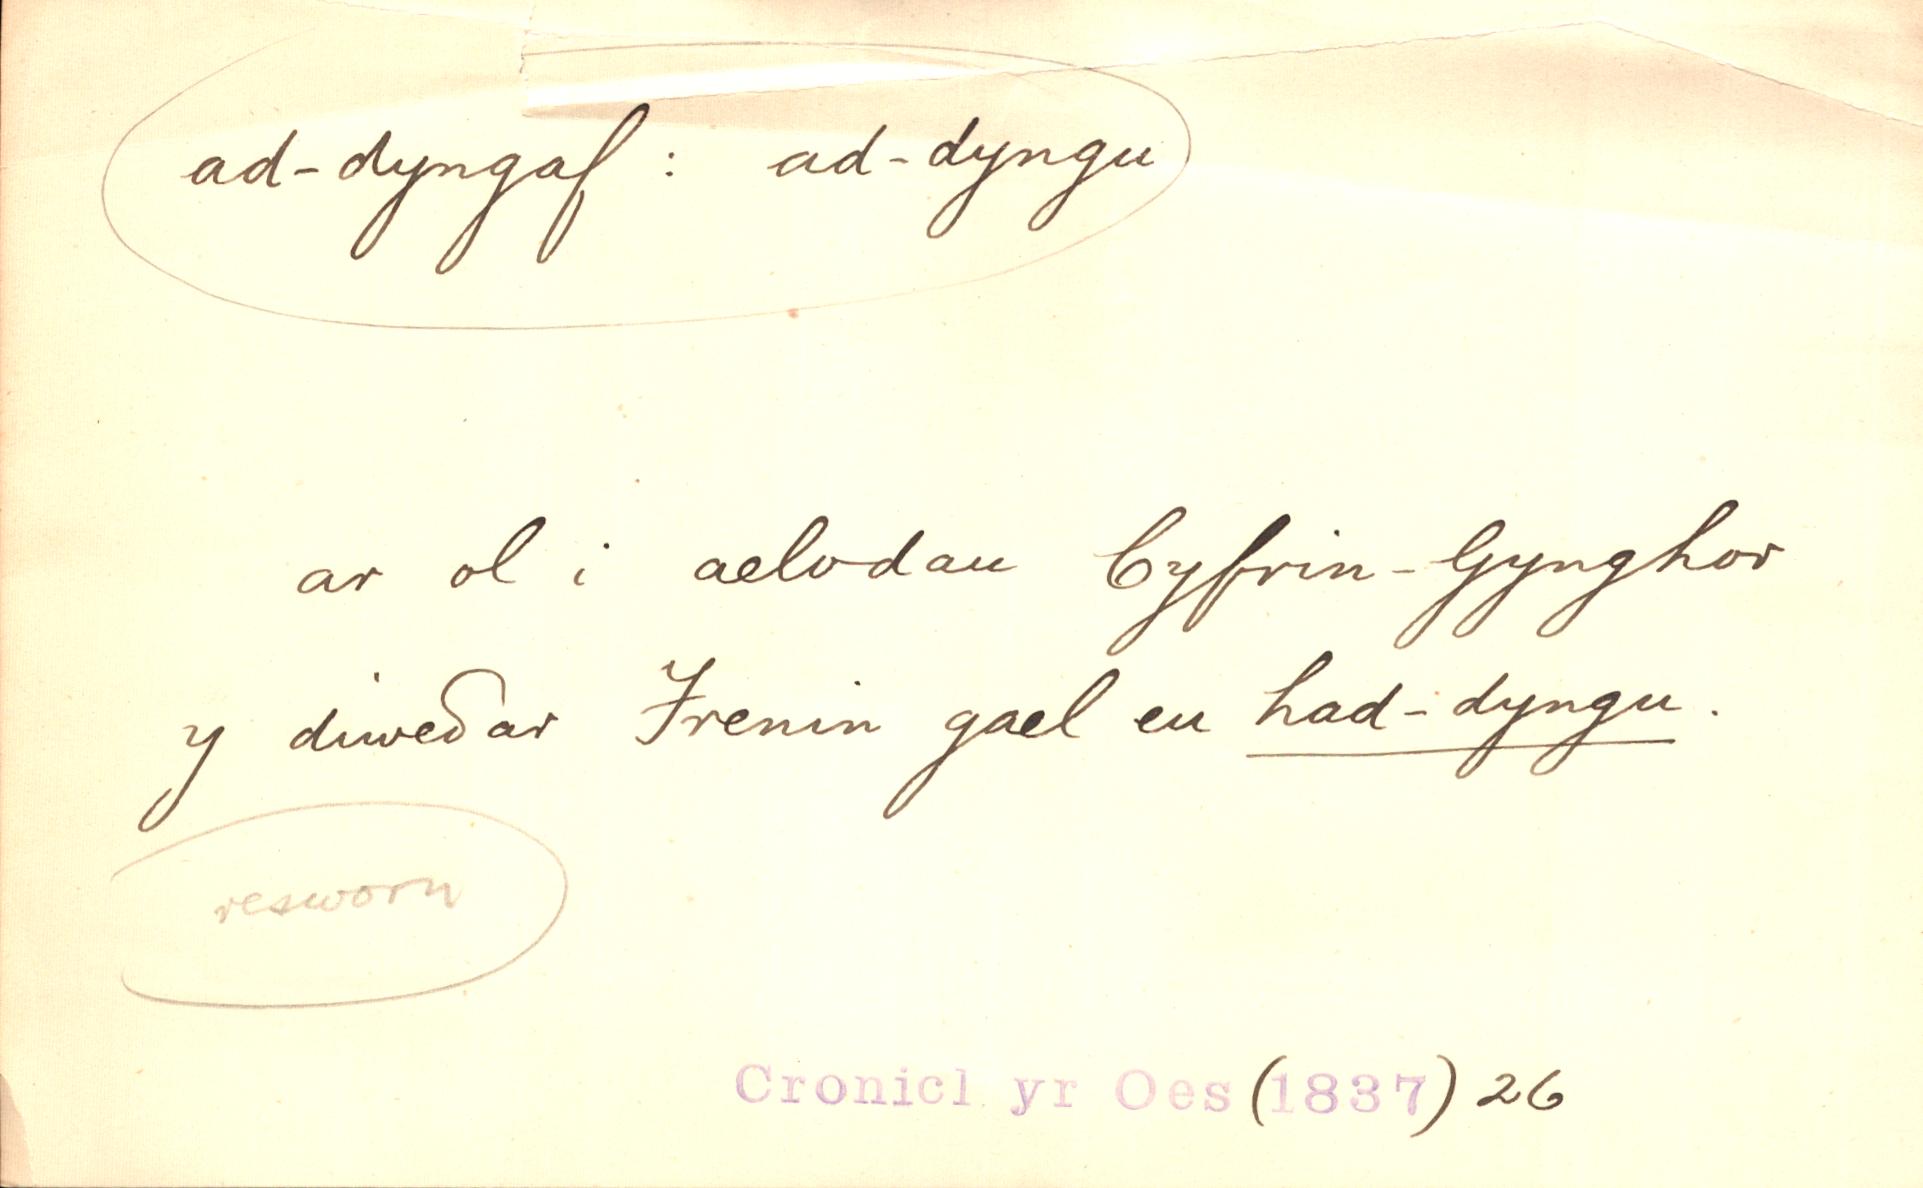 ad-dyngaf : ad-dyngu
ar ol i aelodau Cyfrin-Gynghor
y diweδar Frenin gael eu had-dyngu.
resworn
Cronicl yr Oes (1837) 26